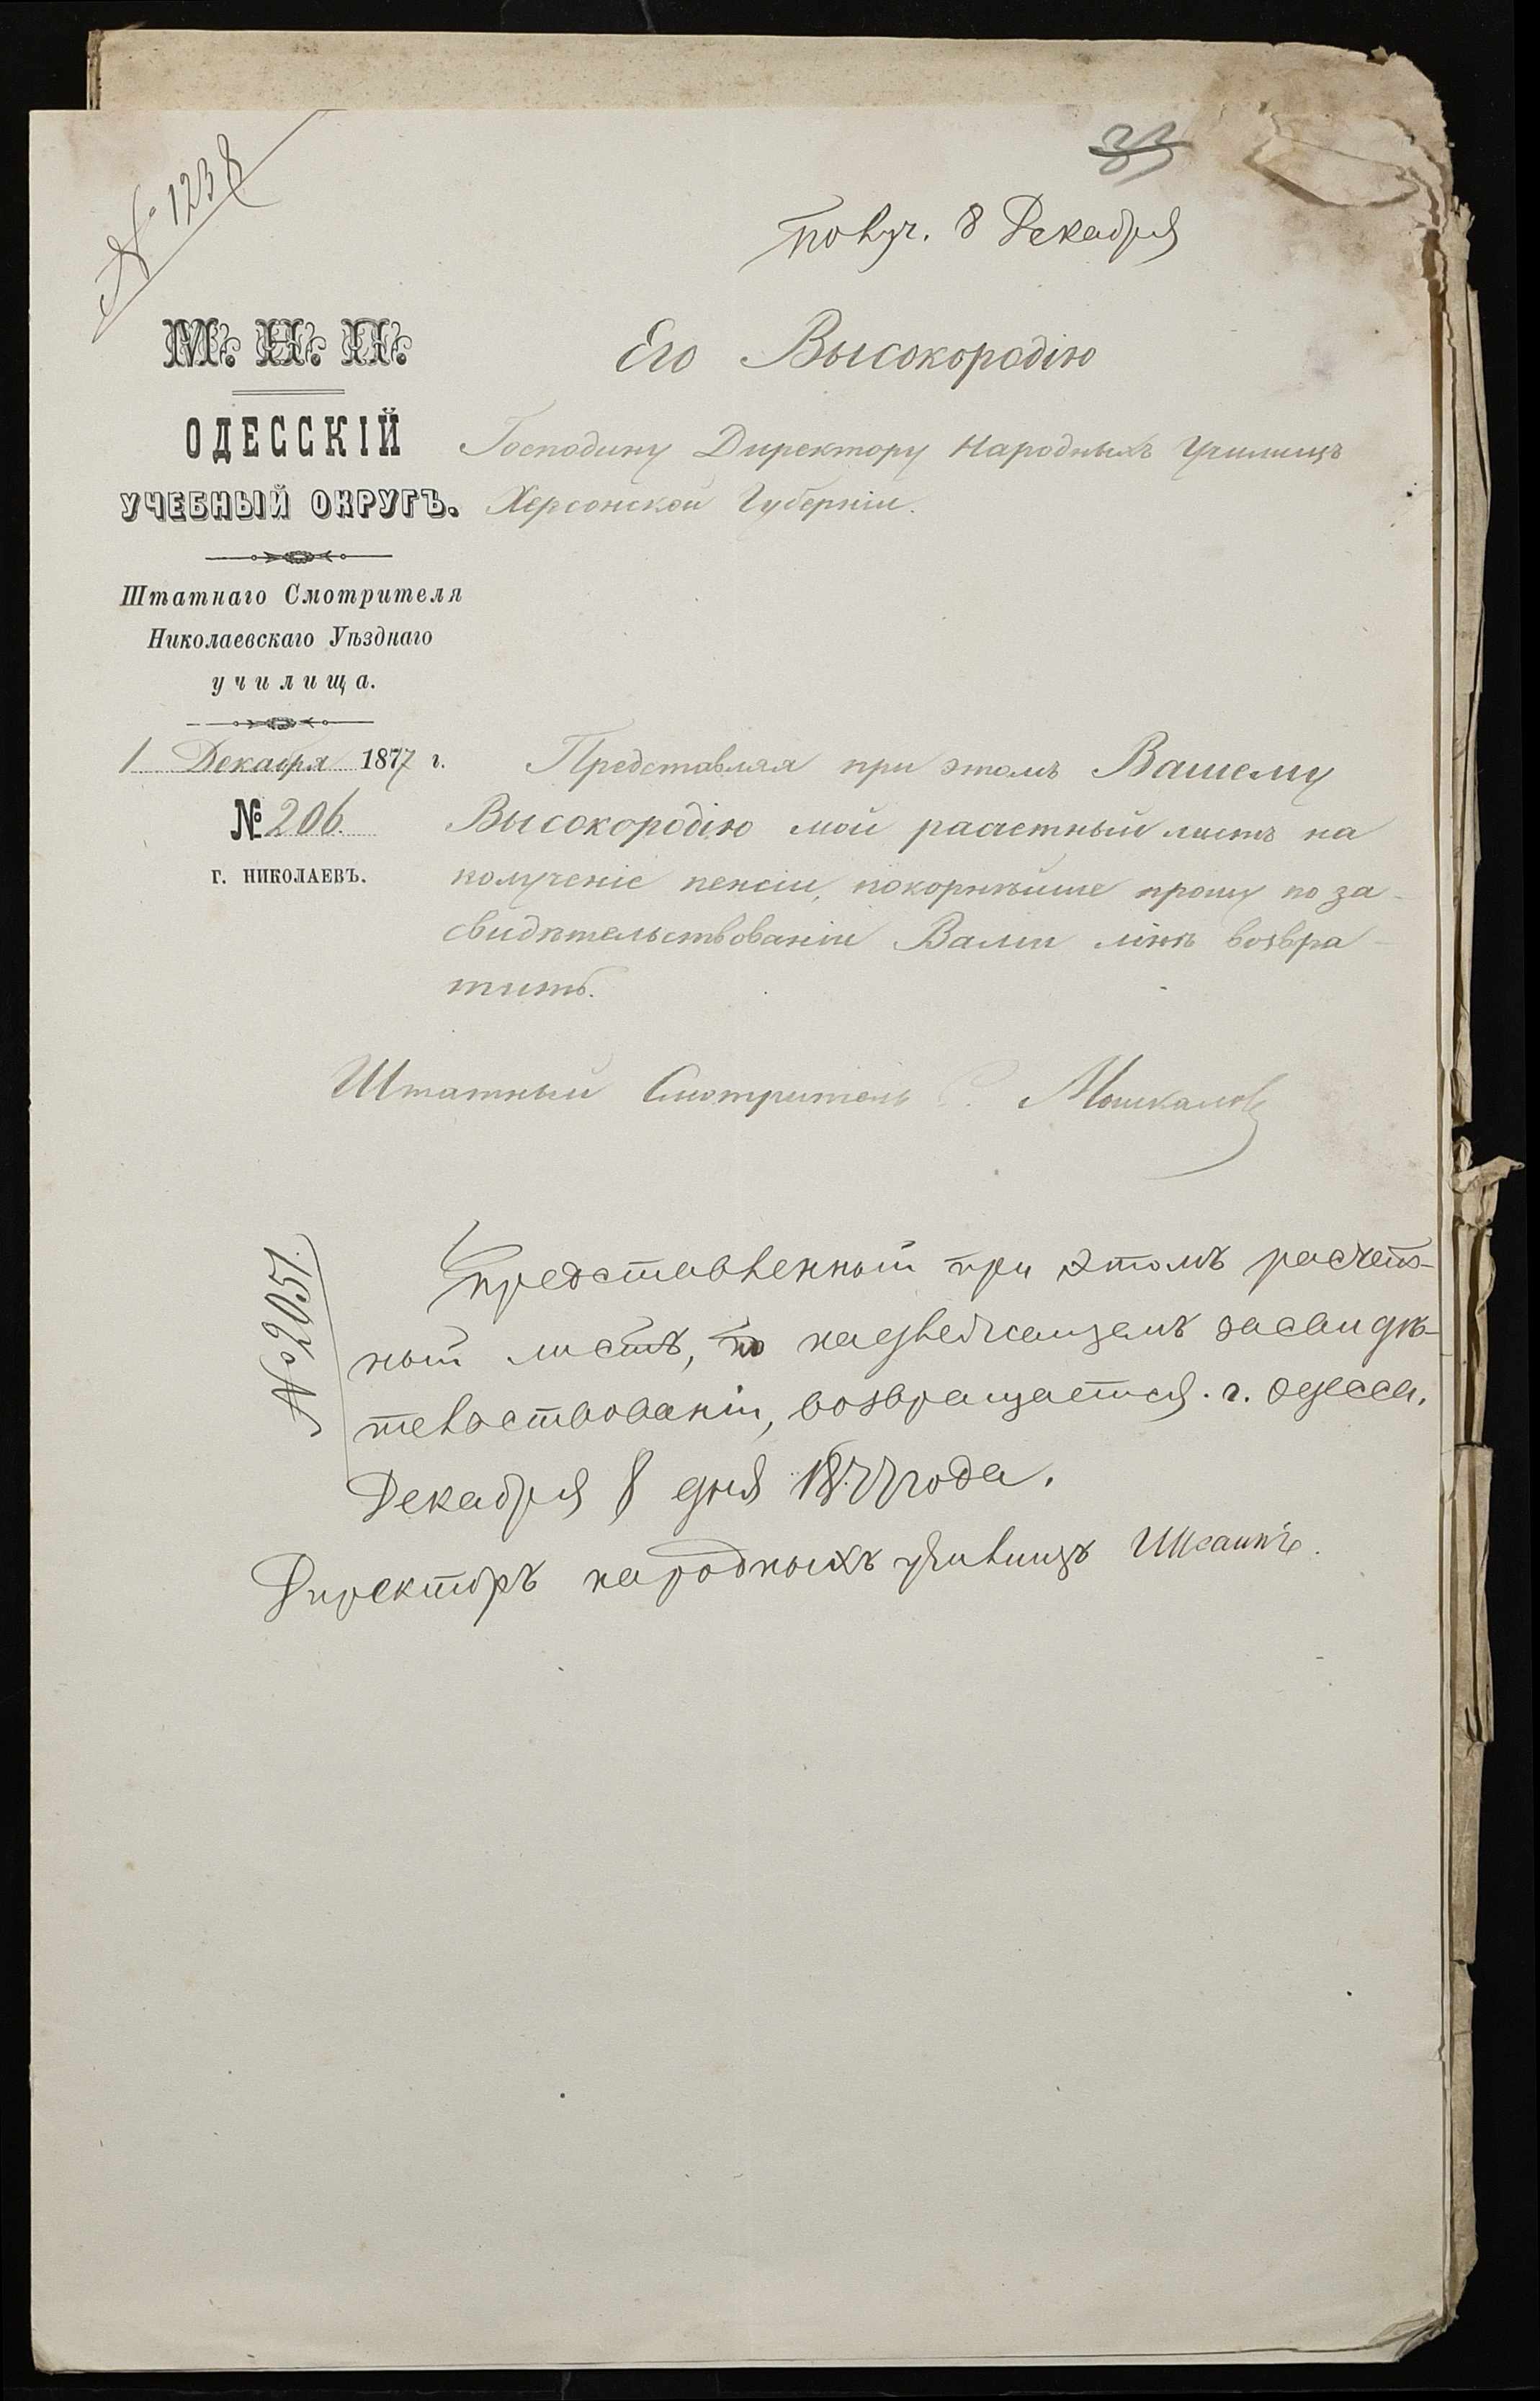 № 1238
33
Получ. 8 Декабря
М. Н. П.
ОДЕССКІЙ
УЧЕБНЫЙ ОКРУГЪ.
Штатнаго Смотрителя
Николаевскаго Уѣзднаго
училища.
1 Декабря 1877 г.
№ 206.
г. НИКОЛАЕВЪ.
Его Высокородію
Господину Директору Народныхъ Училищъ
Херсонской Губерніи.
Представляя при этомъ Вашему
Высокородію мой расчетный листъ на
полученіе пенсіи, покорнѣйше прошу по за-
свидѣтельствованіи Вами мнѣ возвра-
тить.
Штатный Смотритель
№ 2051.
Представленный при этомъ расчет-
ный листъ, по надлежащемъ засвидѣ-
тельствованіи, возвращается. г. Одесса.
Декабря 8 дня 1877 года.
Директоръ народныхъ училищъ